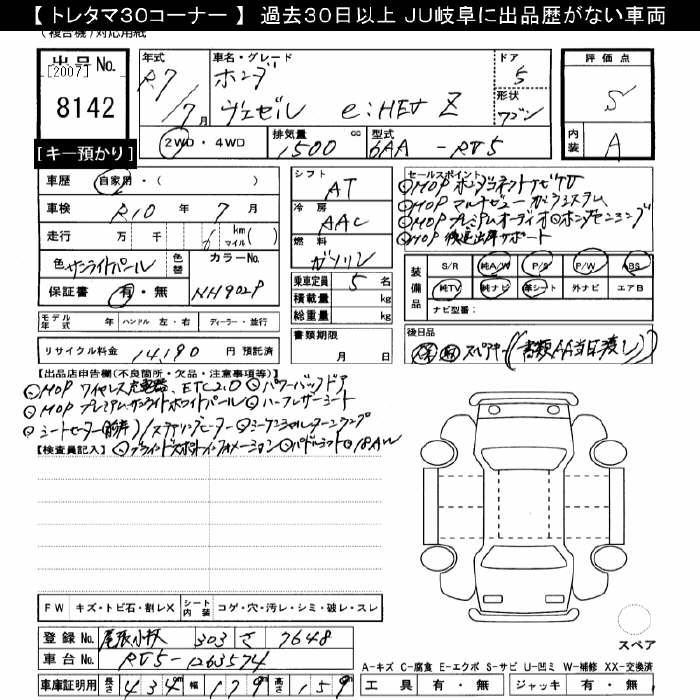 【 トレタマ30コーナー 】 過去30日以上 JU岐阜に出品歴がない車両
(複合機)対応用紙
出品 No.
[2007]
8142
[キー預かり]
年式
R7/7月
車名・グレード
ホンダ
ヴェゼル e:HEV Z
ドア
5
形状
ワゴン
2WD・4WD
排気量 cc
1500
型式
6AA - RV5
評価点
S
内装
A
車歴 自家用・( )
車検 R10 年 7 月
走行 万 千 6 km マイル( )
色 サンライトパール 色替
カラーNo.
NH902P
保証書 有・無
モデル年式 年 ハンドル 左・右 ディーラー・並行
リサイクル料金 14,190 円 預託済
シフト
AT
冷房
AAC
燃料
ガソリン
乗車定員 5 名
積載量 kg
総重量 kg
書類期限
月 日
セールスポイント
○MOP ホンダコネクトナビTV
○MOP マルチビューカメラシステム
○MOP プレミアムオーディオ○ホンダセンシング
○MOP 後退出庫サポート
装備品
S/R 純A/W P/S P/W ABS
純TV 純ナビ 革シート 外ナビ エアB
ナビ型番:
後日品
保 取 スペアキー (書類AA当日渡し)
【出品店申告欄(不良箇所・欠品・注意事項等)】
○MOP ワイヤレス充電器、ETC2.0 ○パワーバックドア
○MOP プレミアムサンライトホワイトパール ○ハーフレザーシート
○シートヒーター(前席)/ステアリングヒーター ○シーケンシャルターンランプ
○ブラインドスポットインフォメーション ○パドルシフト ○18AW
【検査員記入】
FW キズ・トビ石・割レX シート内装 コゲ・穴・汚レ・シミ・破レ・スレ
登録 No. 尾張小牧 303 さ 7648
車台 No. RV5-1263574
車庫証明用 長さ 434 cm 幅 179 cm 高さ 159 cm
スペア
A-キズ C-腐食 E-エクボ S-サビ U-凹ミ W-補修 XX-交換済
工具 有・無 ジャッキ 有・無